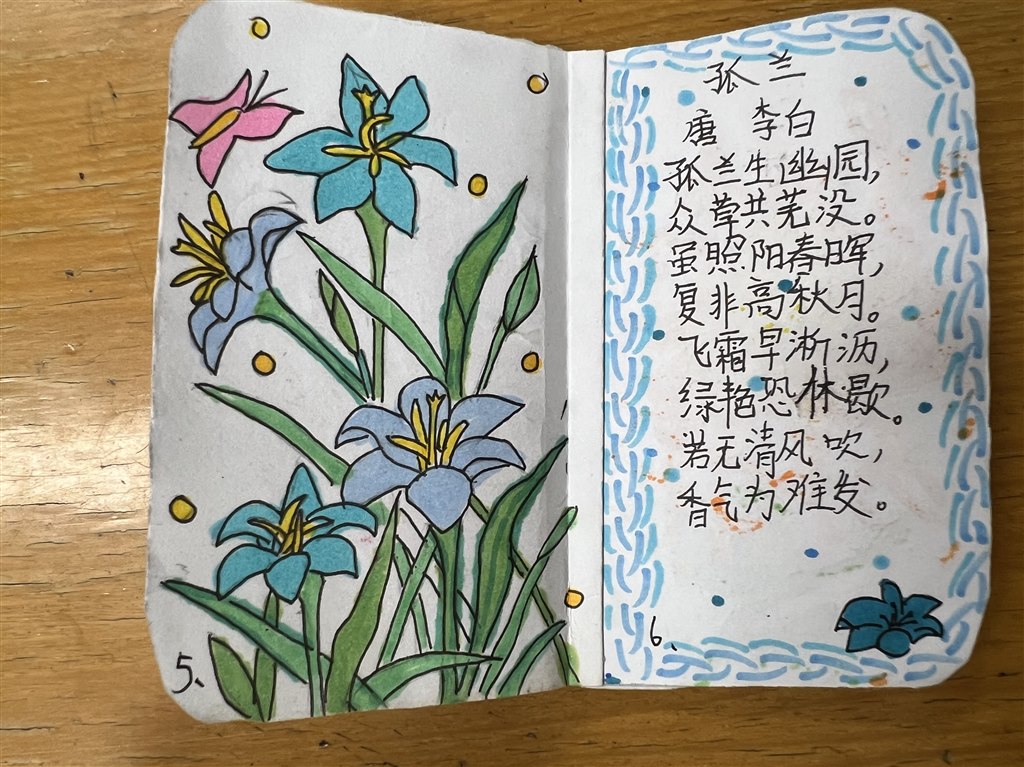 5、
孤兰
唐 李白
孤兰生幽园，
众草共芜没。
虽照阳春晖，
复非高秋月。
飞霜早淅沥，
绿艳恐休歇。
若无清风吹，
香气为难发。
6、